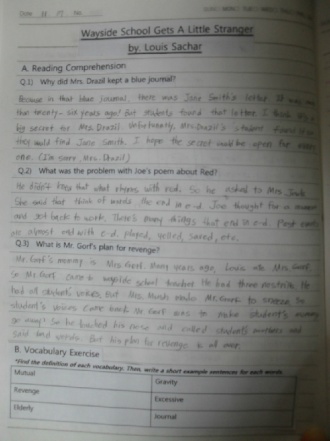 Wayside School Gets A Little Stranger
by. Louis Sachar
A. Reading Comprehension
Q.1) Why did Mrs. Drazil kept a blue journal?
Because in that blue journal, there was Jane Smith's letter. It was more
than twenty-six years ago! But students found that letter. I think
big secret for Mrs. Drazil. Unfortunately, Mrs. Drazil's student found
they would find Jane Smith. I hope the secret would be open for
one. (I'm sorry, Mrs. Drazil)
Q.2) What was the problem with Joe's poem about Red?
He didn't know that what rhymes with red. So he asked to Mrs. Jewls.
She said that think of words the end in e-d. Joe thought for a moment
and got back to work. There's many things that end in e-d. Most
are almost end with e-d. played, yelled, saved, etc.
Q.3) What is Mr. Gorf's plan for revenge?
Mr. Gorf's mommy is Mrs. Gorf. Many years ago, Louis ate Mrs. Gorf,
so Mr. Gorf came to wayside school teacher. He had three nostrils. He
had all students voices, But Mrs. Mush made Mr. Gorf to sneeze. So
student's voices came back. He Gorf was to make student's mommy
go away! So he touched his nose and called student's mothers and
said bad words. But his plan for revenge is all over.
B. Vocabulary Exercise
*Find the definition of each vocabulary. Then, write a short example sentences for each words.
Mutual
Gravity
Revenge
Excessive
Elderly
Journal